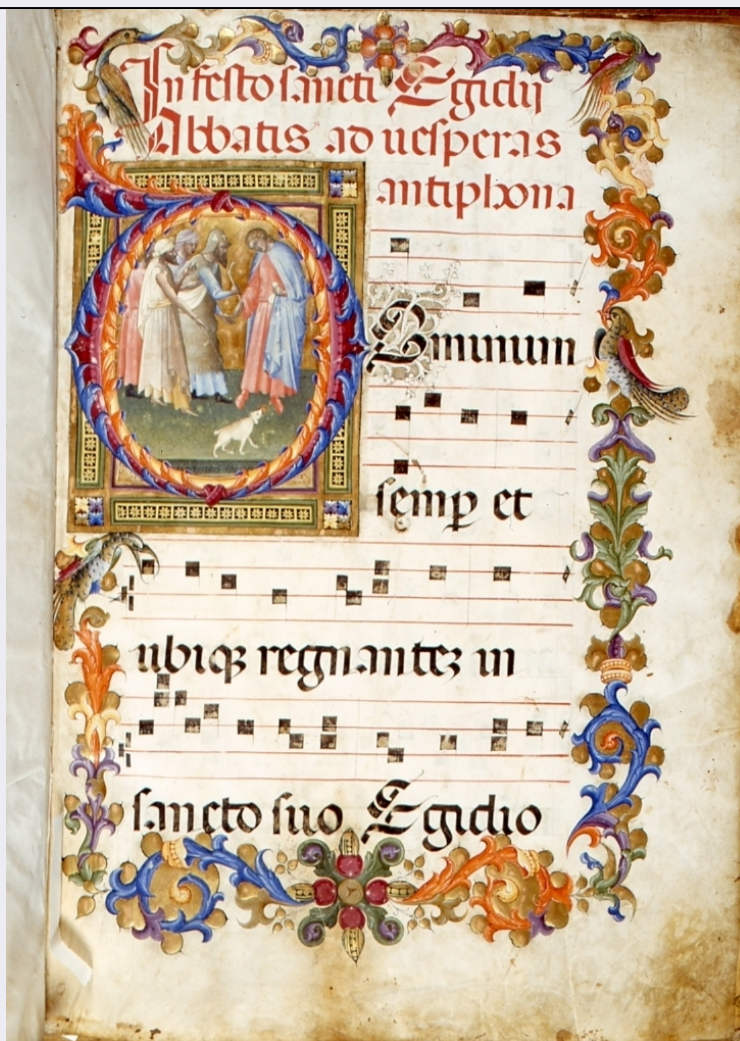 In festo sancti Egidij
Abbatis ad uesperas
antiphona
Dominum
semp et
ubiqꝫ regnantez in
sancto suo Egidio